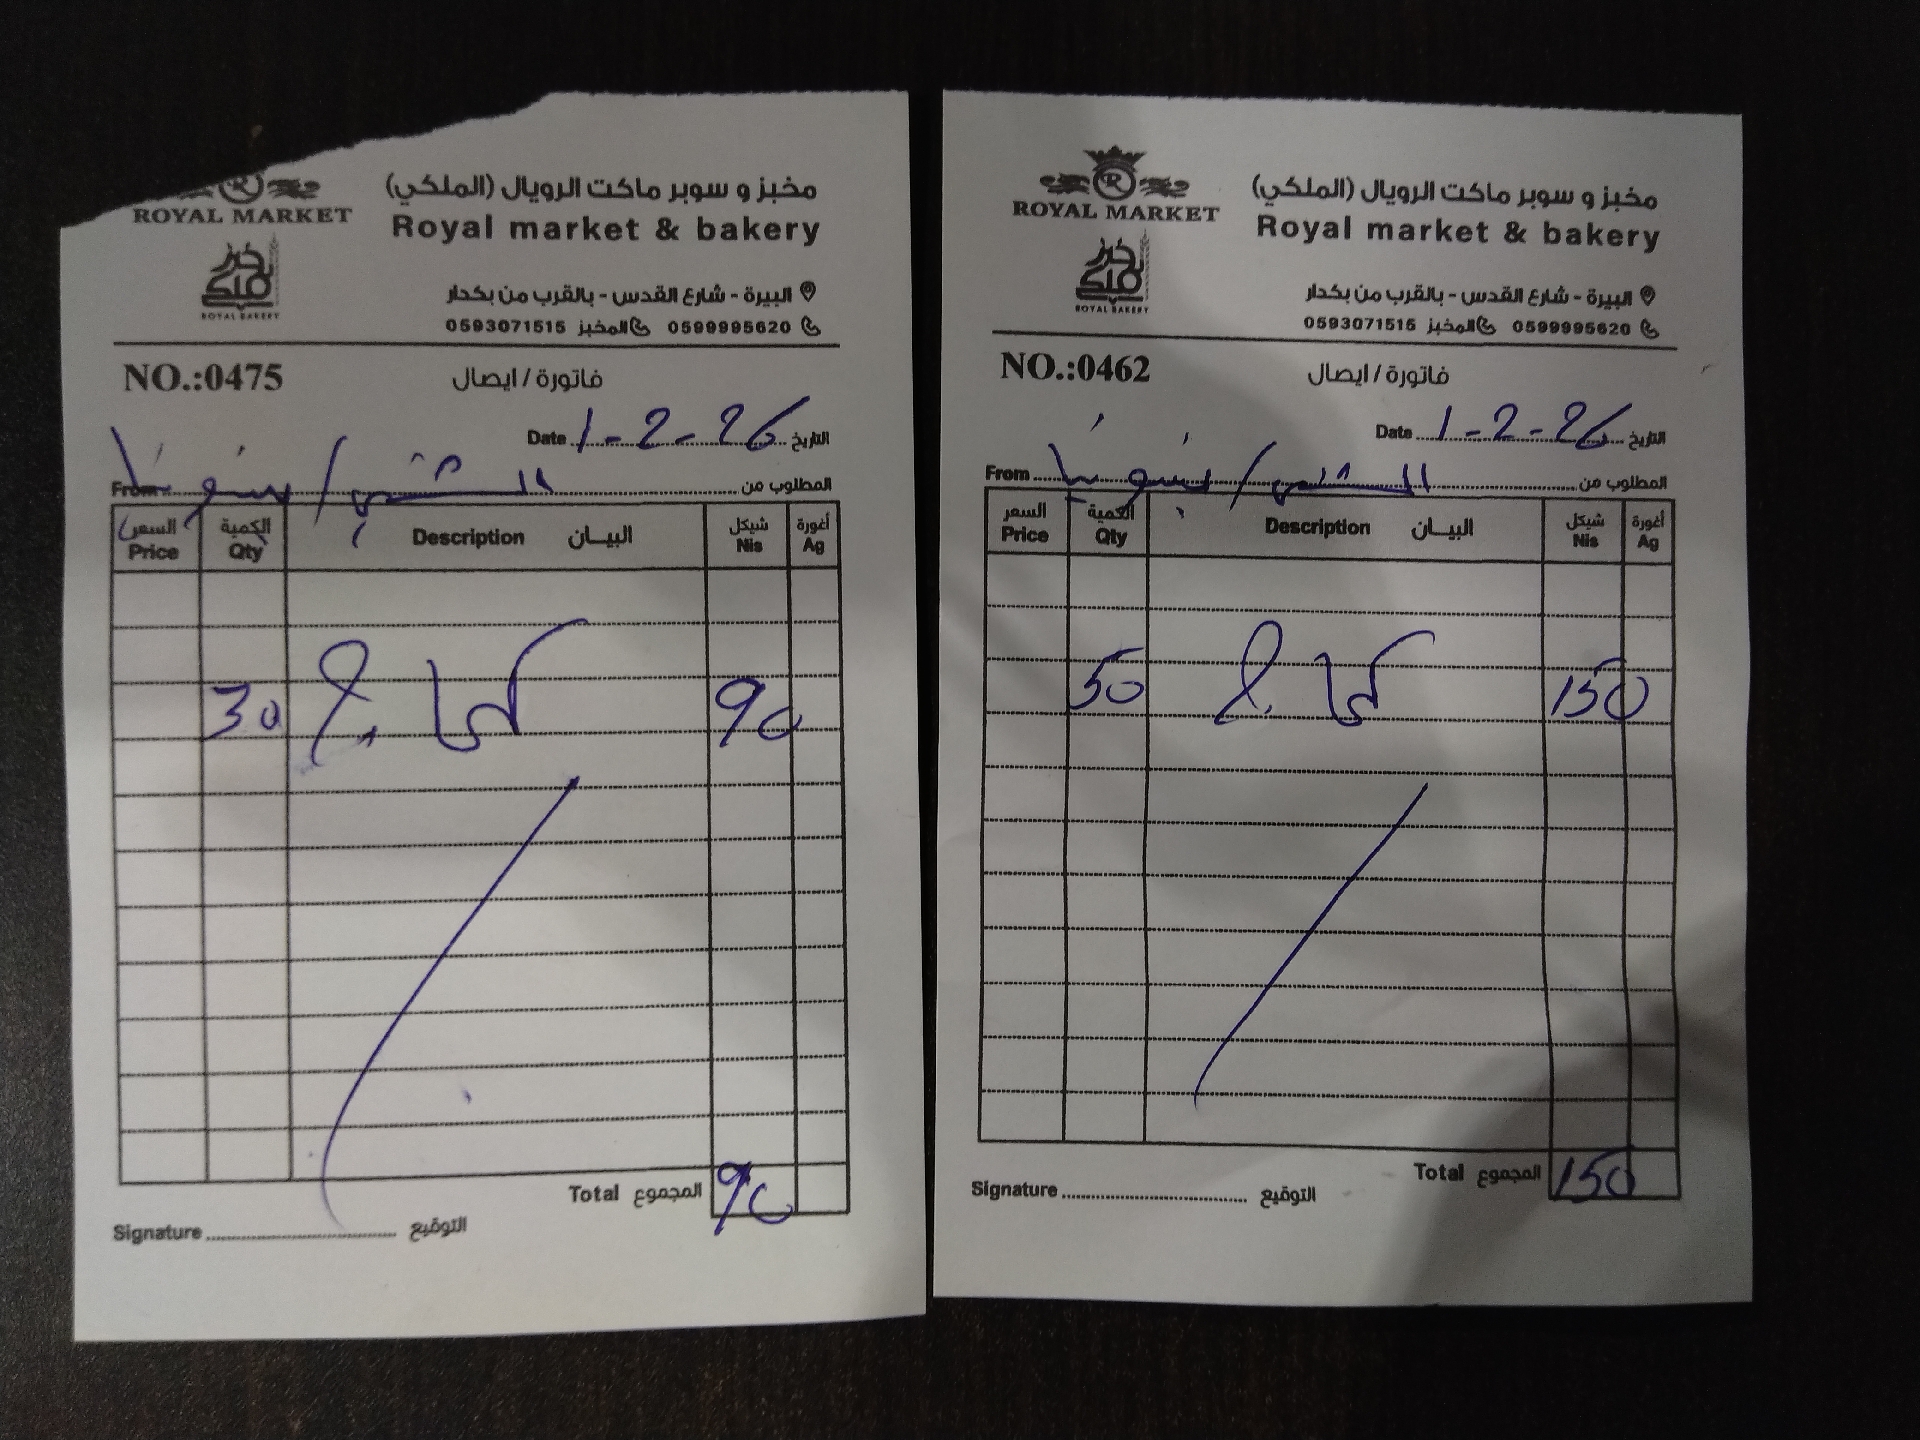 ROYAL MARKET
مخبز و سوبر ماكت الرويال (الملكي)
Royal market & bakery
ROYAL BAKERY
البيرة - شارع القدس - بالقرب من بكدار
0599995620 المخبز 0593071515
NO.:0475
فاتورة / ايصال
Date 1-2-26 التاريخ
From المطلوب من
السعر Price الكمية Qty Description البيـــان شيكل Nis أغورة Ag
30 90
Total المجموع 90
Signature التوقيع
ROYAL MARKET
مخبز و سوبر ماكت الرويال (الملكي)
Royal market & bakery
ROYAL BAKERY
البيرة - شارع القدس - بالقرب من بكدار
0599995620 المخبز 0593071515
NO.:0462
فاتورة / ايصال
Date 1-2-26 التاريخ
From المطلوب من
السعر Price الكمية Qty Description البيـــان شيكل Nis أغورة Ag
50 150
Total المجموع 150
Signature التوقيع